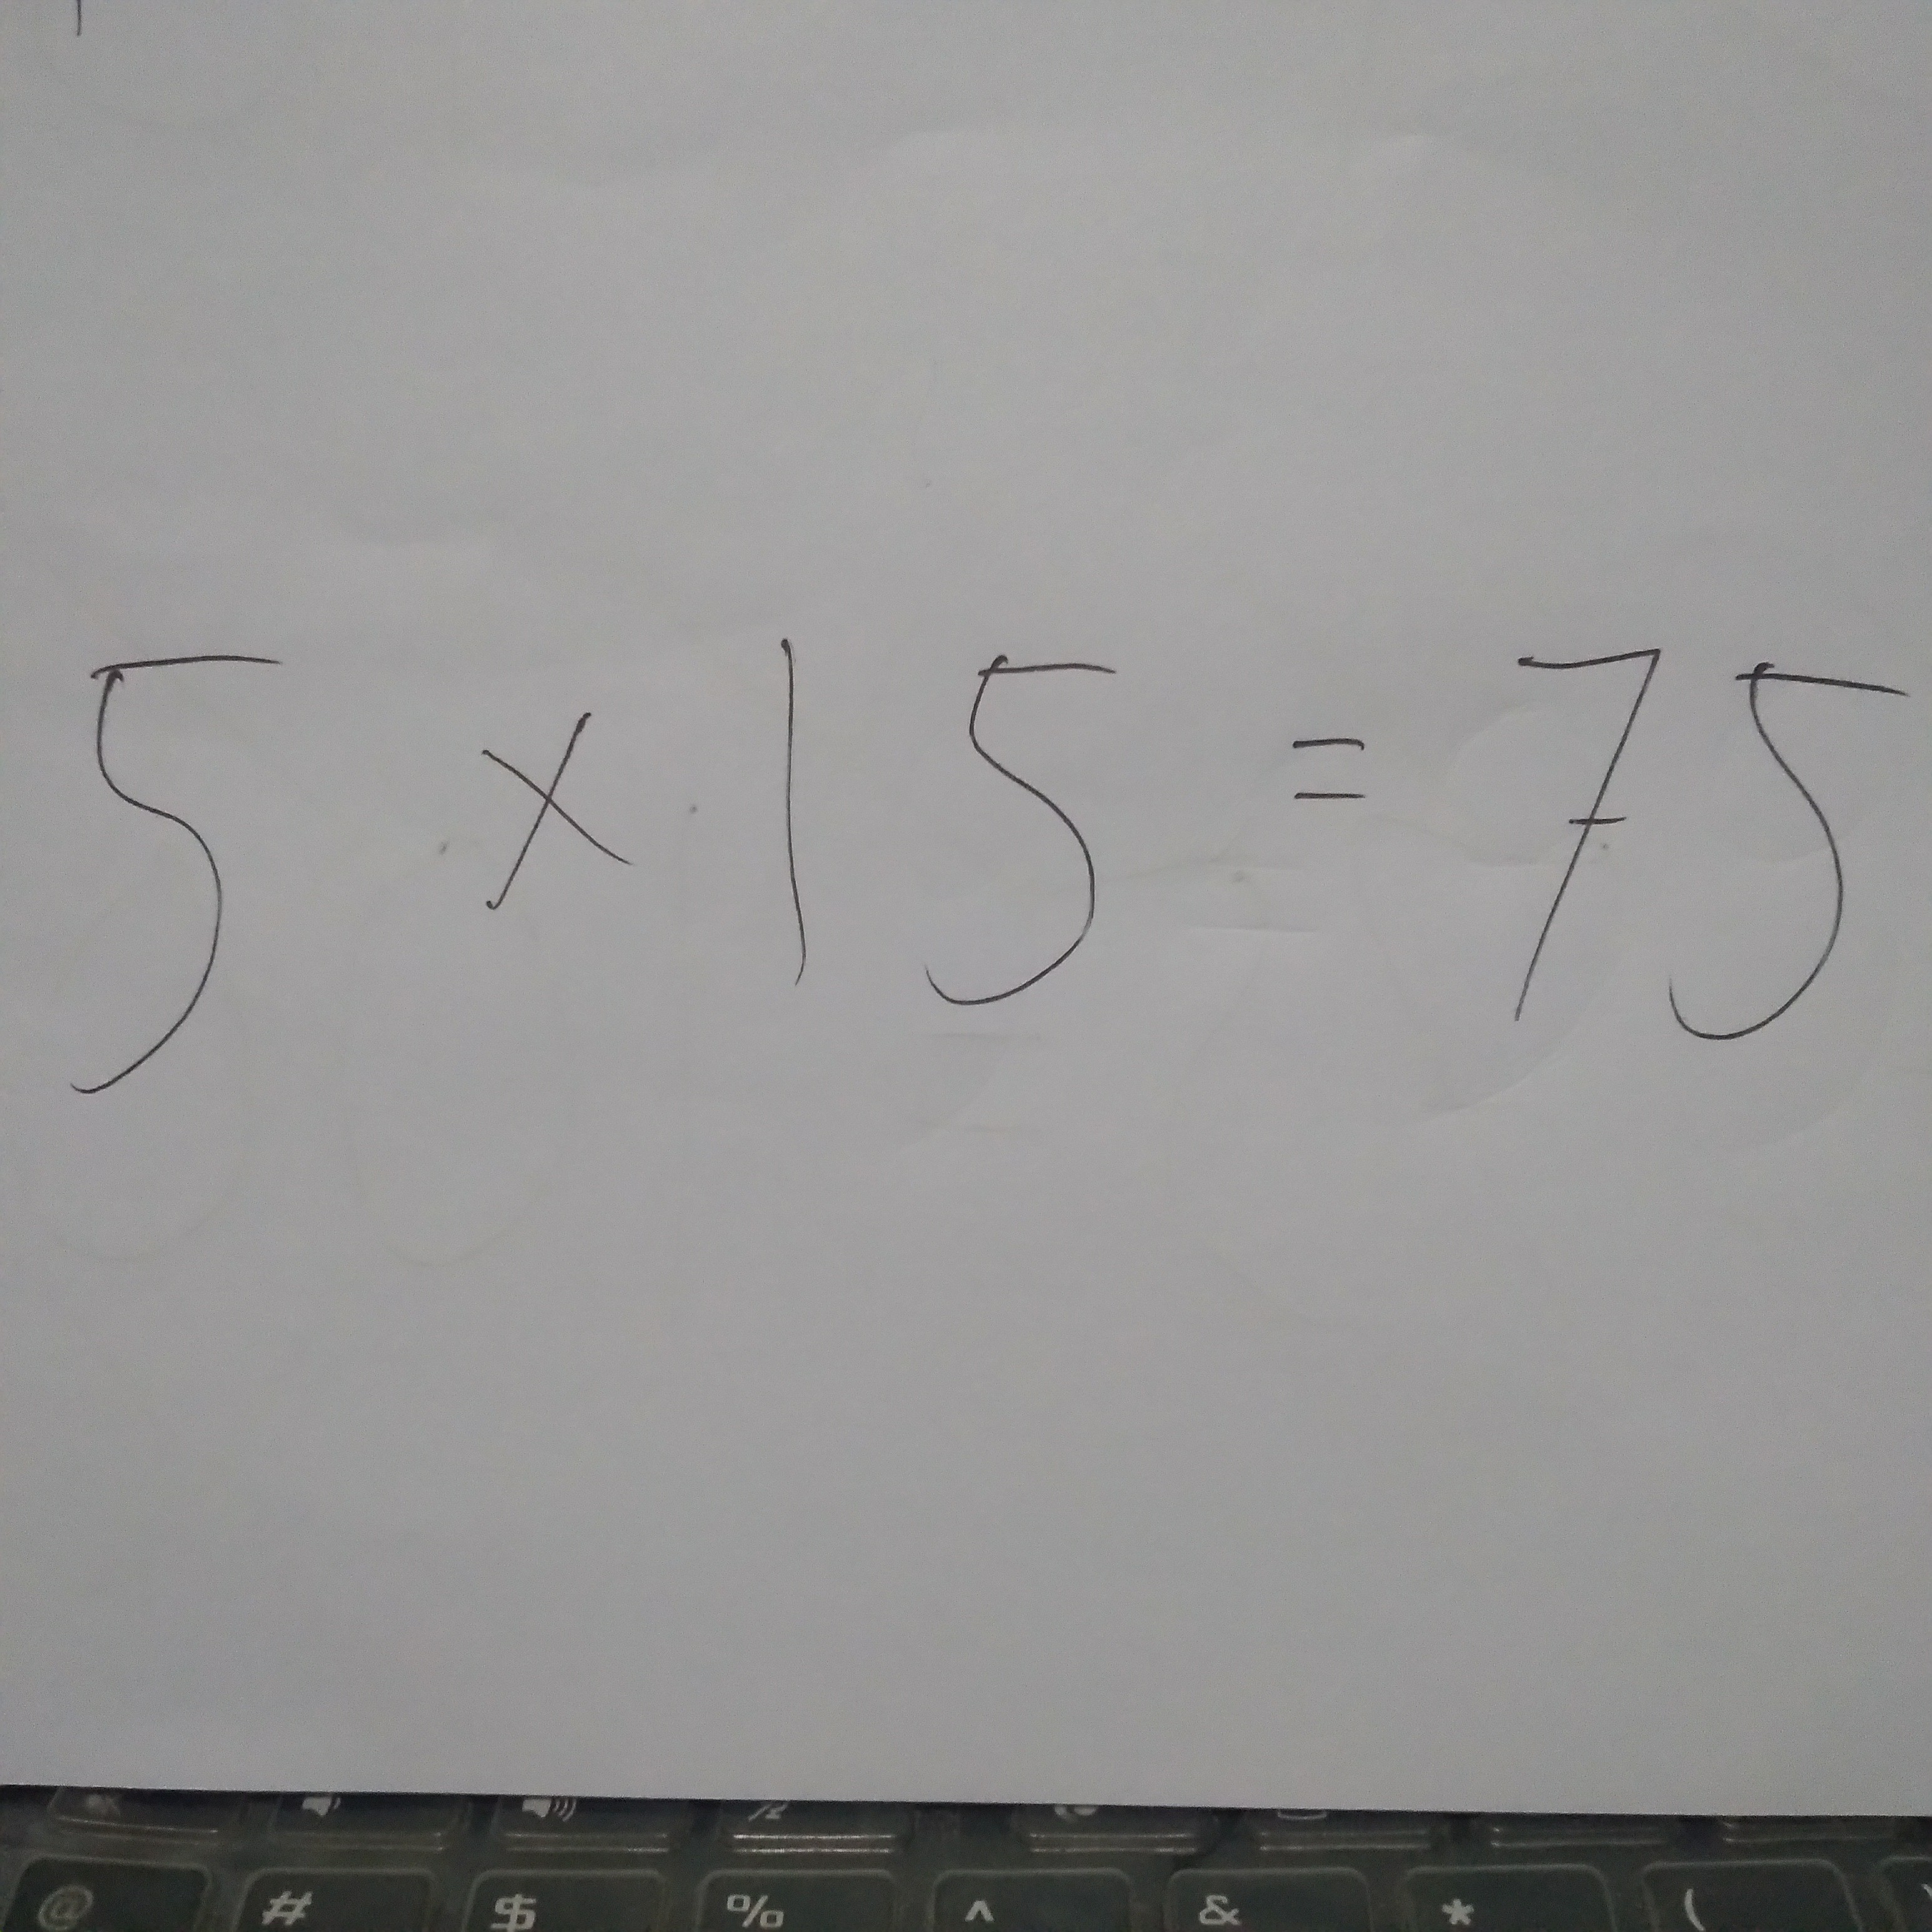 5 × 15 = 75
@ # $ % ^ & * (